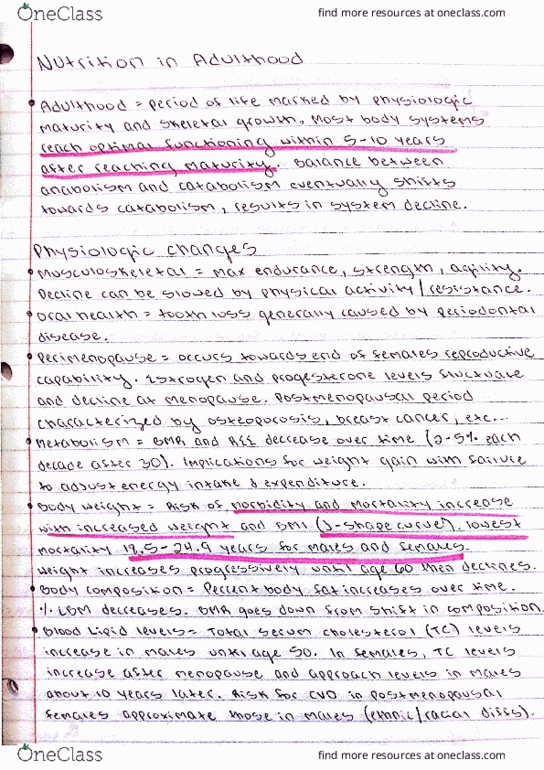 OneClass
find more resources at oneclass.com
Nutrition in Adulthood
• Adulthood = period of life marked by physiologic
maturity and skeletal growth. Most body systems
reach optimal functioning within 5-10 years
after reaching maturity. Balance between
anabolism and catabolism eventually shifts
towards catabolism, results in system decline.
Physiologic changes
• Musculoskeletal = max endurance, strength, agility.
Decline can be slowed by physical activity/resistance.
• Oral health = tooth loss generally caused by Periodontal
disease.
• Perimenopause = occurs towards end of females reproductive
capability. Estrogen and progesterone levels fluctuate
and decline at menopause. Postmenopausal period
characterized by osteoporosis, breast cancer, etc...
• Metabolism = BMR and REE decrease over time (2-5% each
decade after 30). Implications for weight gain with failure
to adjust energy intake & expenditure.
• Body weight = Risk of morbidity and mortality increase
with increased weight and BMI (J-shape curve), lowest
mortality 19.5-24.9 years for males and females.
Weight increases progressively until age 60 then declines.
• Body composition = Percent body fat increases over time.
% LBM decreases. BMR goes down from shift in composition.
• Blood Lipid levels = Total serum cholesterol (TC) levels
increase in males until age 50. In females, TC levels
increase after menopause and approach levels in males
about 10 years later. Risk for CVD in postmenopausal
females approximate those in males (ethnic/racial diffs).
OneClass
find more resources at oneclass.com